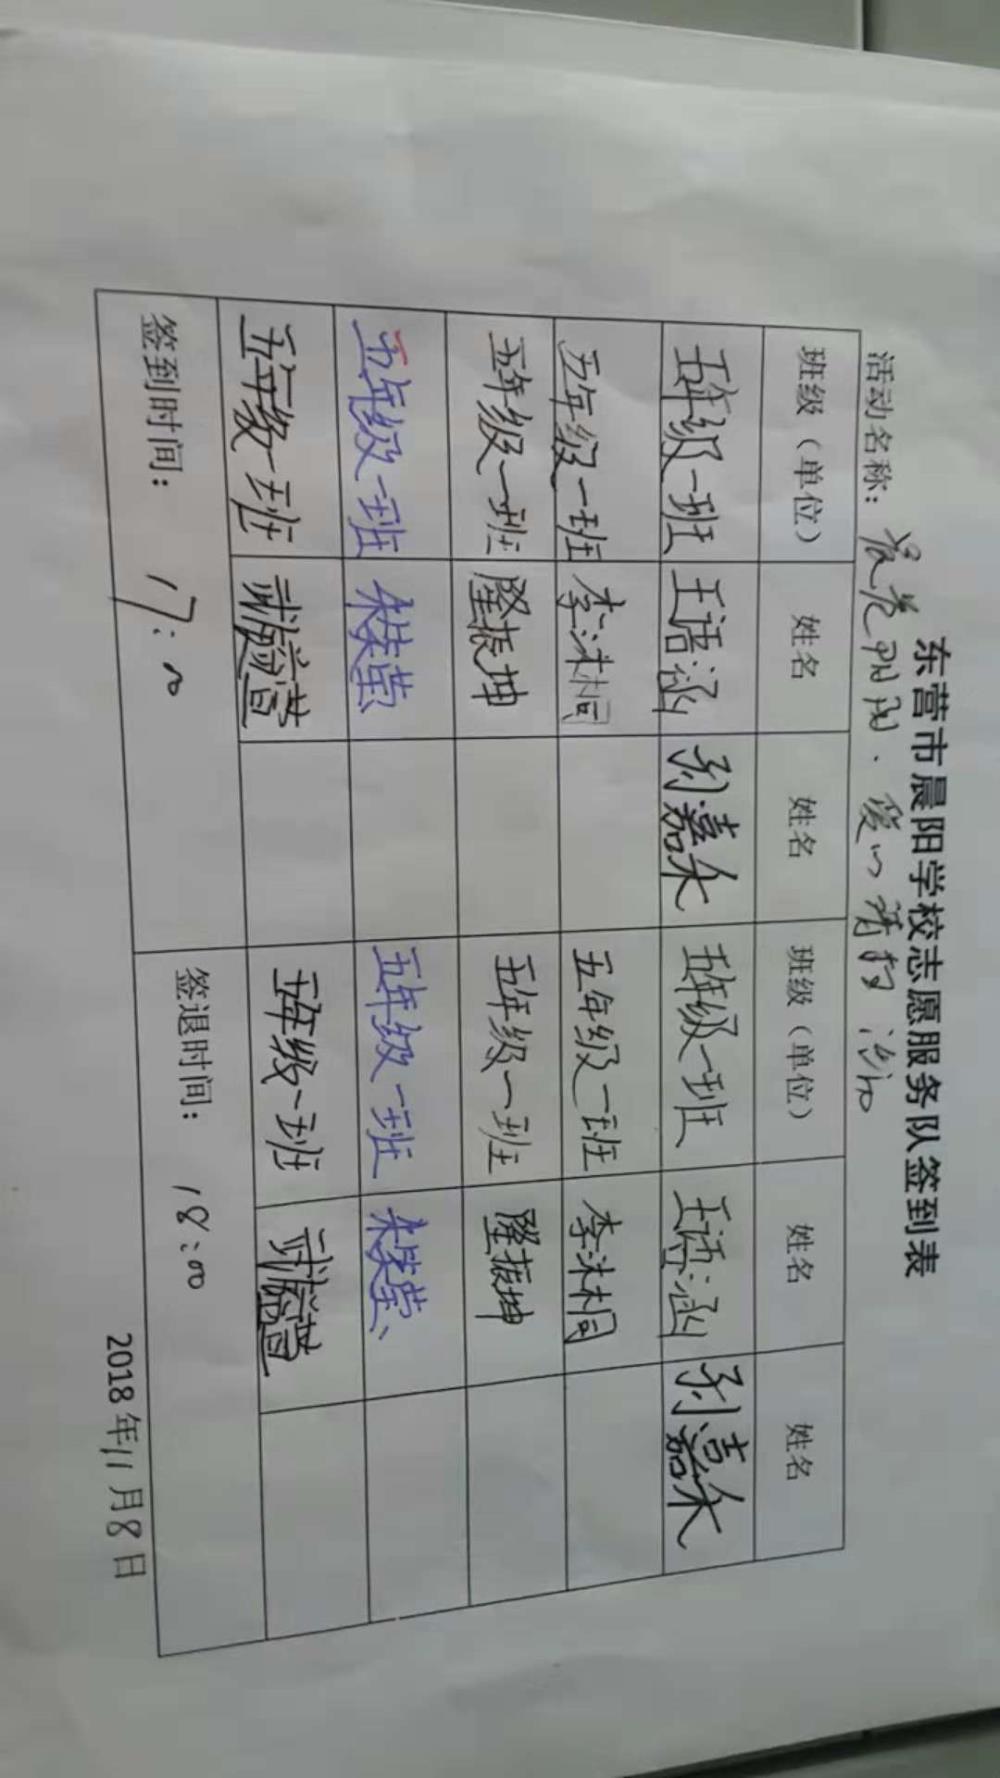 东营市晨阳学校志愿服务队签到表
活动名称：晨光阳阳·爱心清扫活动
班级（单位） 姓名 姓名 班级（单位） 姓名 姓名
五年级一班 王语涵 孙嘉永 五年级一班 王语涵 孙嘉永
五年级一班 李沐桐 五年级一班 李沐桐
五年级一班 隆振坤 五年级一班 隆振坤
五年级一班 五年级一班
五年级一班 五年级一班
签到时间：17:00 签退时间：18:00
2018年11月8日